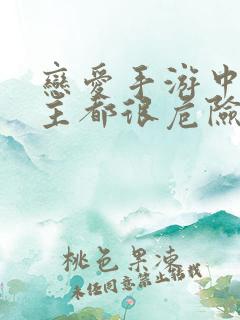 戀愛手游中
主都很危險
桃色果凍
未经同意禁止转载